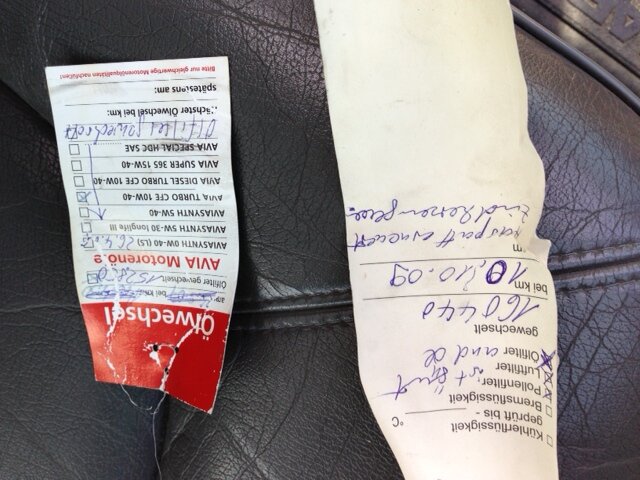 Kühlerflüssigkeit
geprüft bis - °C
Bremsflüssigkeit
Pollenfilter
Luftfilter
Ölfilter und Öl
gewechselt
160440
bei km
10.10.09
am
Auspuff erneuert
Ölwechsel
am: bei km:
Ölfilter gewechselt:
AVIA Motorenöle
AVIASYNTH 0W-40 (LS)
AVIASYNTH 5W-30 longlife III
AVIASYNTH 5W-40
AVIA TURBO CFE 10W-40
AVIA DIESEL TURBO CFE 10W-40
AVIA SUPER 365 15W-40
AVIA SPECIAL HDC SAE
Ölfilter gewechselt
nächster Ölwechsel bei km:
spätestens am:
Bitte nur gleichwertige Motorenölqualitäten nachfüllen!